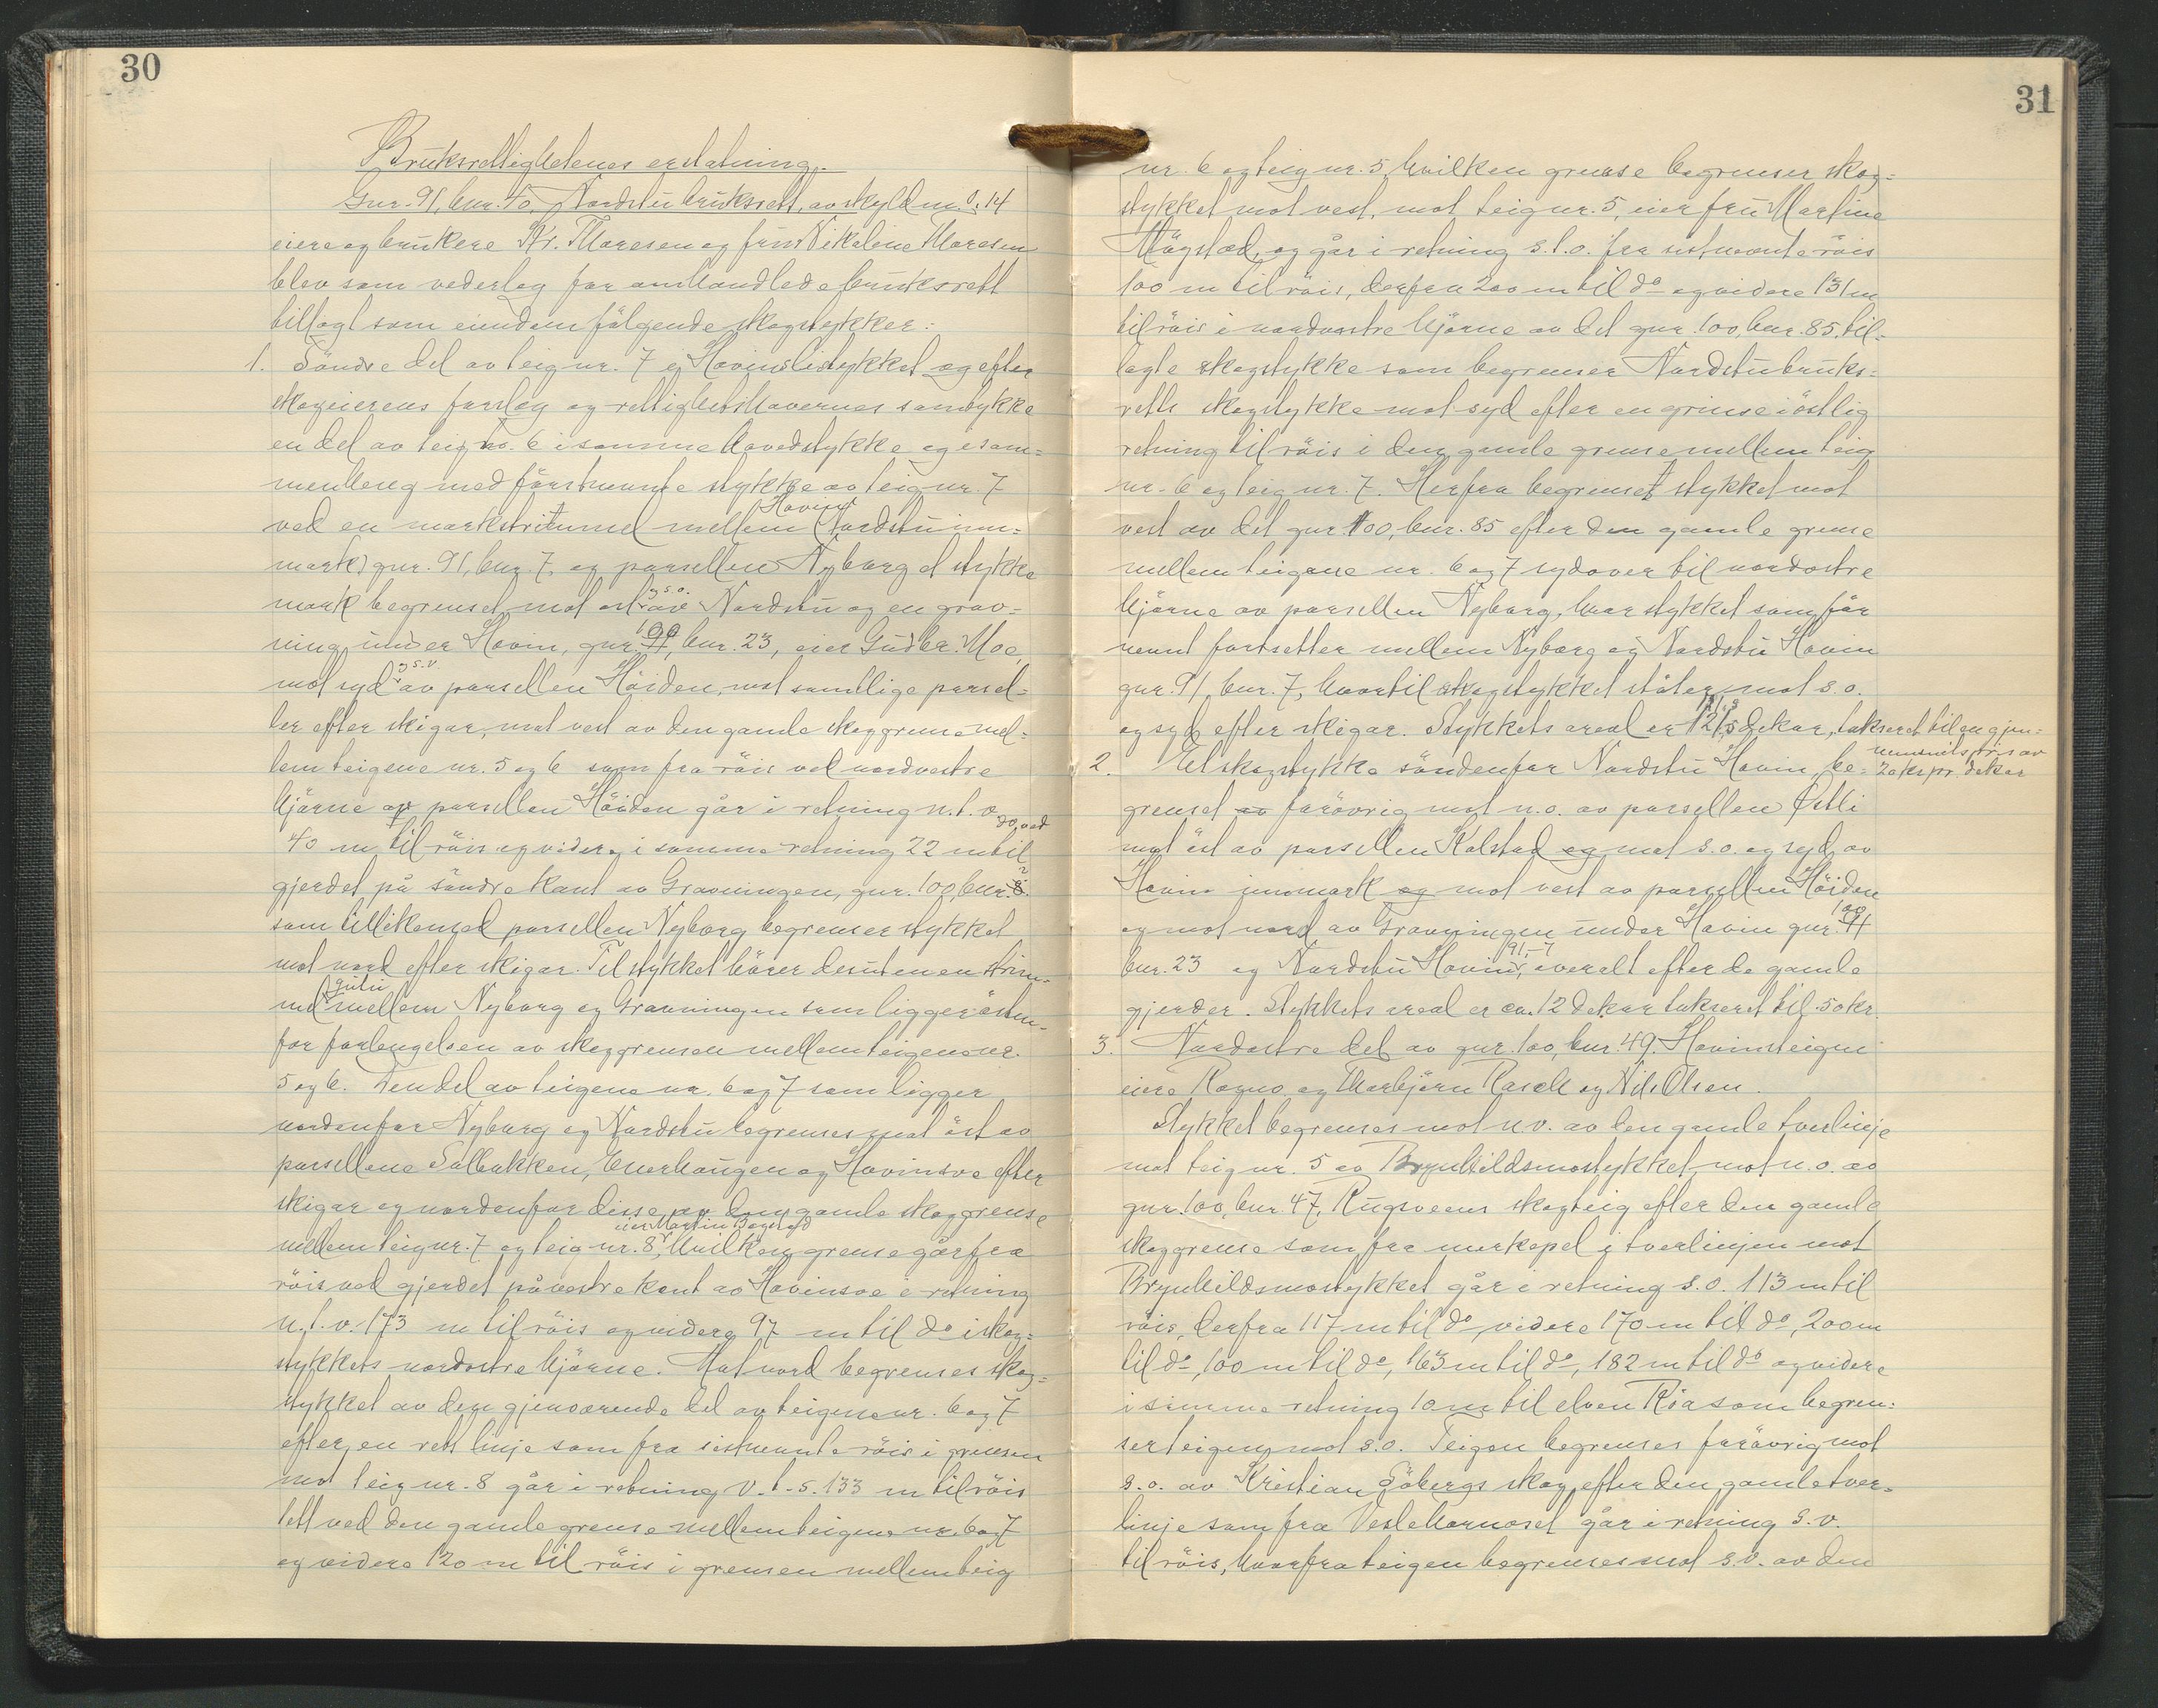 30
Bruksrettighetenes erstatning.
Gnr. 91, bnr. 40, Nordstu bruksrett, av skyld m. 0.14
eiere og brukere Kr. Thoresen og fru Nikoline Thoresen
blev som vederlag for omhandlede bruksrett
tillagt som eiendom følgende skogstykker:
1. Søndre del av teig nr. 7 i Hovinslistykket og efter
skogeierens forslag og rettighetshavernes samtykke
en del av teig no. 6 i samme hovedstykke og i sam-
menheng med førstnevnte stykke av teig nr. 7
ved en markstrimmel mellem Nordstu Hovin inn-
mark, gnr. 91, bnr. 7, og parsellen Nyborg et stykke
mark begrenset mot ost og s.o. av Nordstu og en grav-
ning under Hovin, gnr. 100, bnr. 23, eier Gudbr. Moe,
mot syd og s.v. av parsellen Höiden, mot samtlige parsel-
ler efter skigar, mot vest av den gamle skoggrense mel-
lem teigene nr. 5 og 6 som fra röis ved nordvestre
hjörne av parsellen Höiden går i retning n.t.o.
40 m til röis og videre i samme retning 22 m til do, ved
gjerdet på søndre kant av Gravningen, gnr. 100, bnr. 23.
som tillikemed parsellen Nyborg begrenser stykket
mot nord efter skigar. Til stykket hörer desuten en strim-
mel mellem Nyborg og Gravningen som ligger östen-
for forlengelsen av skoggrensen mellem teigene nr.
5 og 6. Den del av teigene nr. 6 og 7 som ligger
nordenfor Nyborg og Nordstu begrenses mot öst av
parsellene Solbakken, Enerhaugen og Hovinsve efter
skigar og nordenfor disse av den gamle skoggrense
mellem teig nr. 7 og teig nr. 8, eier Martin Bergerud, hvilken grense går fra
röis ved gjerdet på vestre kant av Hovinsve i retning
n.t.v. 173 m til röis og videre 97 m til do i skog-
stykkets nordostre hjörne. Mot nord begrenses skog-
stykket av den gjenværende del av teigene nr. 6 og 7
efter en rett linje som fra sistnevnte röis i grensen
mot teig nr. 8 går i retning v.t.s. 133 m til röis
tett ved den gamle grense mellem teigene nr. 6 og 7
og videre 120 m til röis i grensen mellem teig
31
nr. 6 og teig nr. 5, hvilken grense begrenser skog-
stykket mot vest, mot teig nr. 5, eier fru Martine
Mögstad, og går i retning s.t.o. fra sistnevnte röis
100 m til röis, derfra 200 m til do og videre 131 m
til röis i nordvestre hjörne av det gnr. 100, bnr. 85 til-
lagte skogstykke som begrenser Nordstu bruks-
retts skogstykke mot syd efter en grense i östlig
retning til röis i den gamle grense mellem teig
nr. 6 og teig nr. 7. Herfra begrenset stykket mot
vest av det gnr. 100, bnr. 85 efter den gamle grense
mellem teigene nr. 6 og 7 sydover til nordostre
hjörne av parsellen Nyborg, hvor stykket som för
nevnt fortsetter mellem Nyborg og Nordstu Hovin
gnr. 91, bnr. 7, hvortil skogstykket stöter mot s.o.
og syd efter skigar. Stykkets areal er 121,3 dekar, taksert til en gjen-
nemsnitspris av
20 kr. pr. dekar
2. Et skogstykke söndenfor Nordstu Hovin, be-
grenset av forövrig mot n.o. av parsellen Østli
mot öst av parsellen Kolstad og mot s.o. og syd av
Hovin innmark og mot vest av parsellen Höiden
og mot nord av Gravningen under Hovin gnr. 100
bnr. 23 og Nordstu Hovin, 91,-7 overalt efter de gamle
gjerder. Stykkets areal er ca. 12 dekar taksert til 50 kr.
3. Nordostre del av gnr. 100, bnr. 49. Hovinsteigen
eiere Ragno og Thorbjörn Rasch og Nils Olsen.
Stykket begrenses mot n.v. av den gamle tverlinje
mot teig nr. 5 av Brynhildsmostykket, mot n.o. av
gnr. 100, bnr. 47, Rugsveens skogteig efter den gamle
skoggrense som fra merkepel i tverlinjen mot
Brynhildsmostykket går i retning s.o. 113 m til
röis, derfra 117 m til do, videre 170 m til do, 200 m
til do, 100 m til do, 163 m til do, 182 m til do og videre
i samme retning 10 m til elven Röa som begren-
ser teigen mot s.o. Teigen begrenses forövrig mot
s.o. av Kristian Söbergs skog efter den gamle tver-
linje som fra Veslehornoset går i retning s.v.
til röis, hvorfra teigen begrenses mot s.v. av den